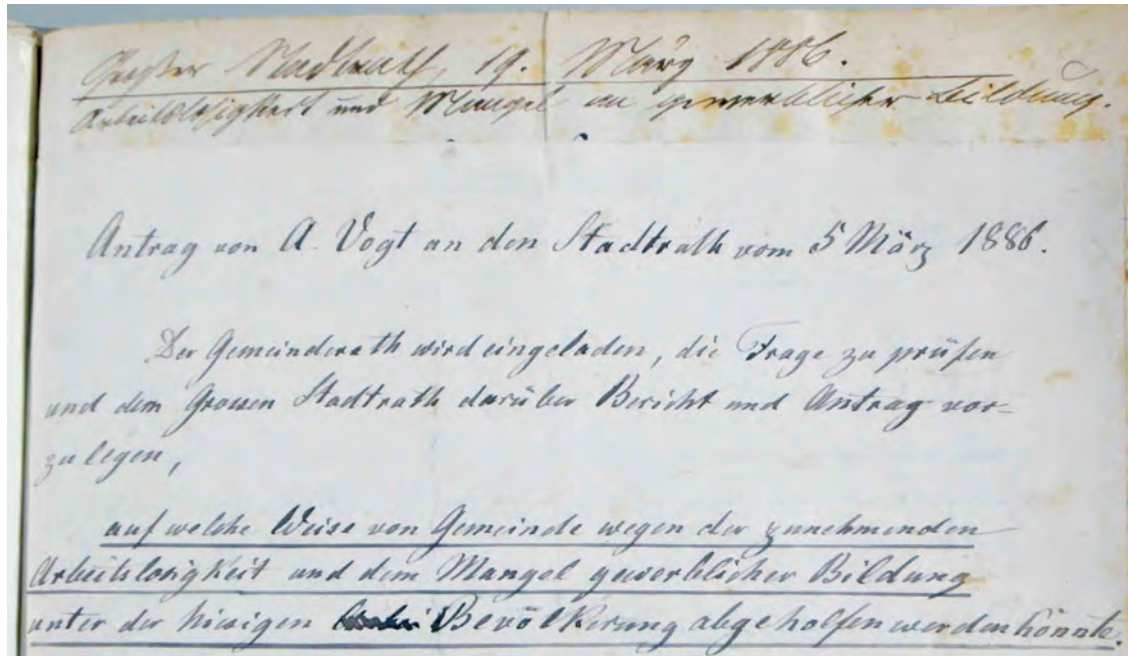 Großer Stadtrath, 19. März 1886.
Arbeitslosigkeit und Mangel an gewerblicher Bildung.
Antrag von A. Vogt an den Stadtrath vom 5 März 1886.
Der Gemeinderath wird eingeladen, die Frage zu prüfen
und dem Grossen Stadtrath darüber Bericht und Antrag vor-
zulegen,
auf welche Weise von Gemeinde wegen der zunehmenden
Arbeitslosigkeit und dem Mangel gewerblicher Bildung
unter der hiesigen Bevölkerung abgeholfen werden könnte.